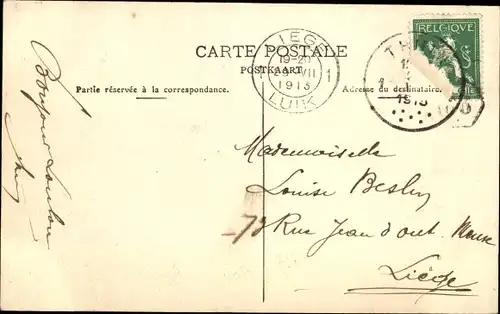 CARTE POSTALE
POSTKAART
Partie réservée à la correspondance.
Adresse du destinataire.
LIEGE
19-20
VII
1913
1
LUIK
BELGIQUE
TH
1913
Bonjour
Mademoiselle
Louise
73 Rue Jean d'out. Meuse
Liège